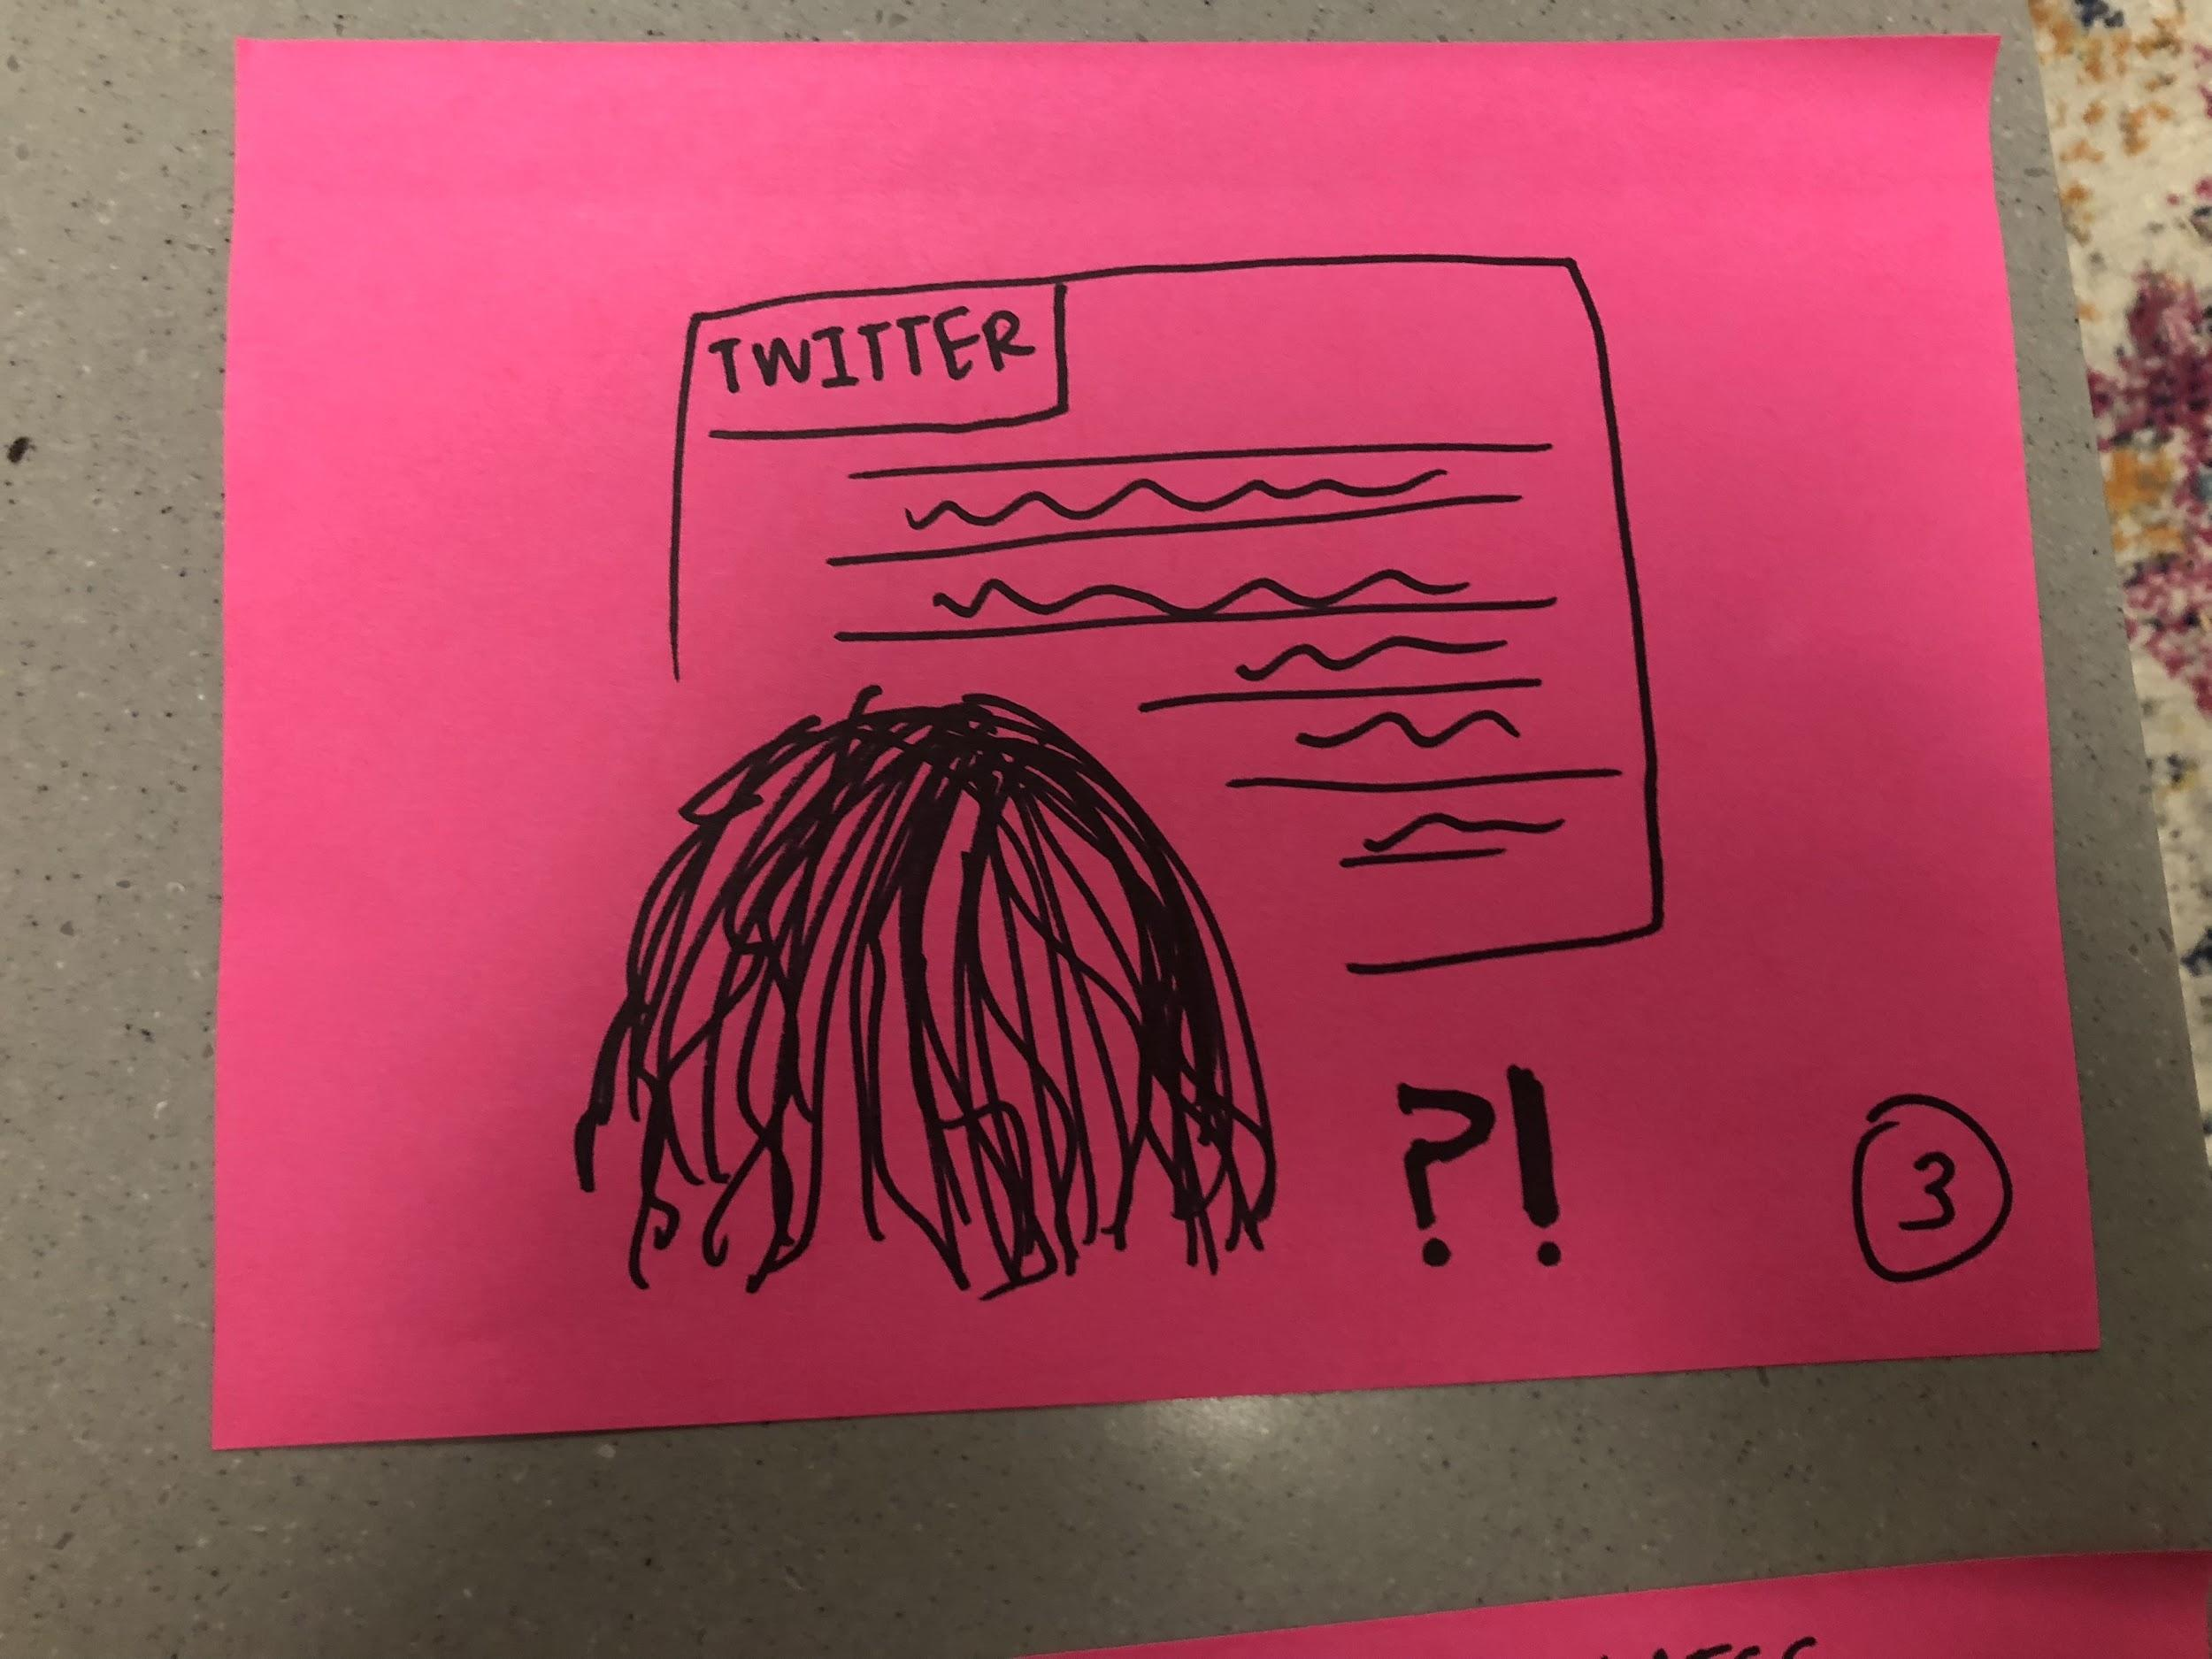 TWITTER
?!
3